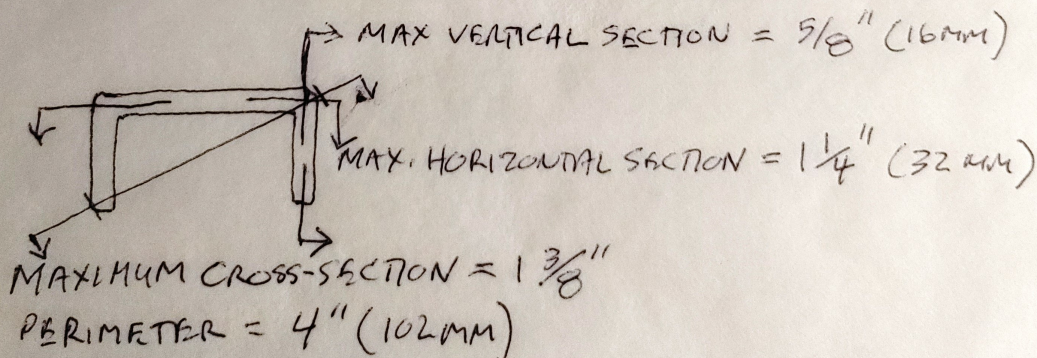 MAX VERTICAL SECTION = 5/8" (16MM)
MAX. HORIZONTAL SECTION = 1 1/4" (32 MM)
MAXIMUM CROSS-SECTION = 1 3/8"
PERIMETER = 4" (102MM)